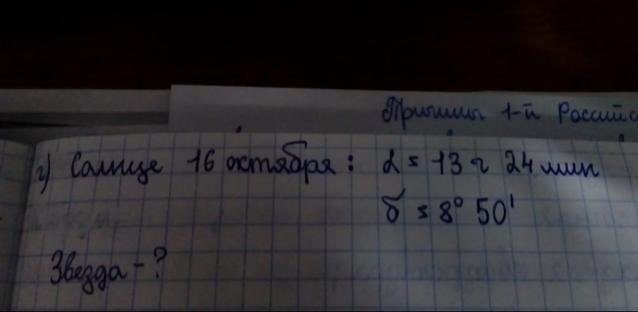 1-й Российс
г) Солнце 16 октября: α = 13 ч 24 мин
δ = 8° 50'
Звезда - ?